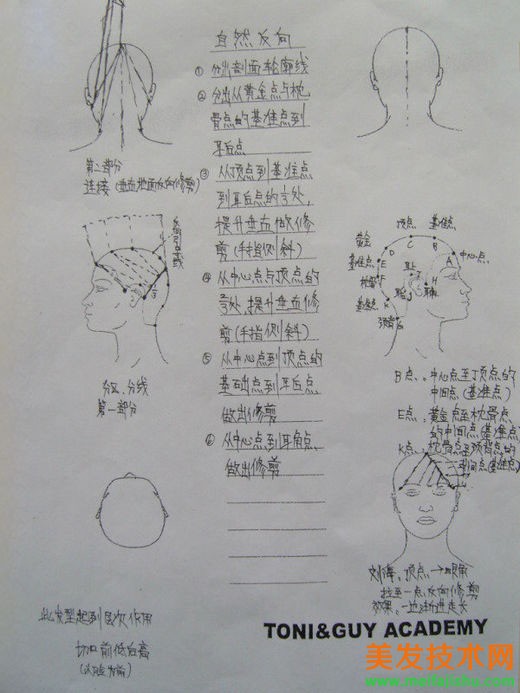 自然反向
① 分出剖面轮廓线
② 分出从黄金点与枕
骨点的基准点到
耳后点
③ 从顶点到基准点
到耳后点的弯处,
提升垂直做修
剪(手指倾斜)
④ 从中心点与顶点的
弯处,提升垂直修
剪(手指倾斜)
⑤ 从中心点到顶点的
基础点到耳后点
做出修剪
⑥ 从中心点到耳角点,
做出修剪
第二部分
连接(垂直地面反向修剪)
分区、分线
第一部分
此发型起到层次作用
切口前低后高
(以脸为前)
顶点 基准点
黄金
中心点
基准点
A
B
C
D
E
H
K
B点、中心点至顶点的
中间点(基准点)
E点、黄金点至枕骨点
的中间点(基准点)
K点、枕骨点至颈背点的
中间点(基准点)
刘海、顶点→眼角
找至一点,反向修剪
效果、一边渐进走长
TONI&GUY ACADEMY
美发技术网
www.meifajishu.com